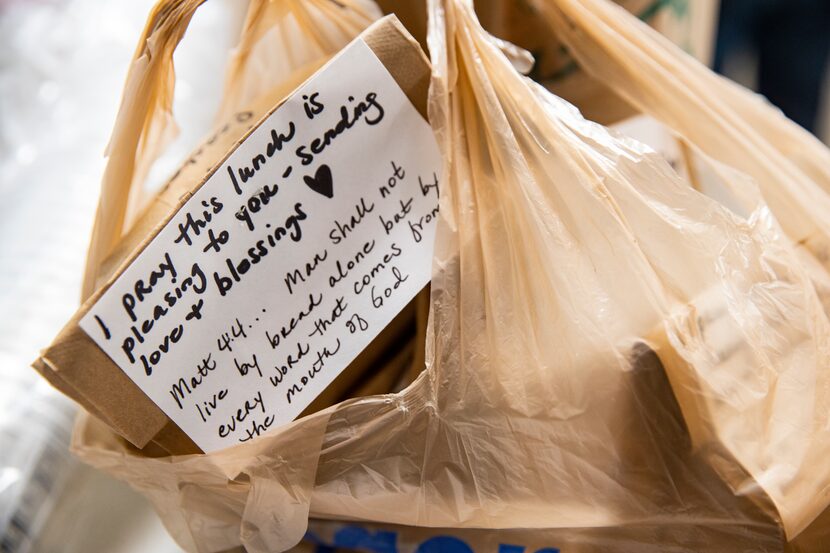 I pray this lunch is
pleasing to you - sending
love + blessings ♥
Matt 4:4... Man shall not
live by bread alone but by
every word that comes from
the mouth of God